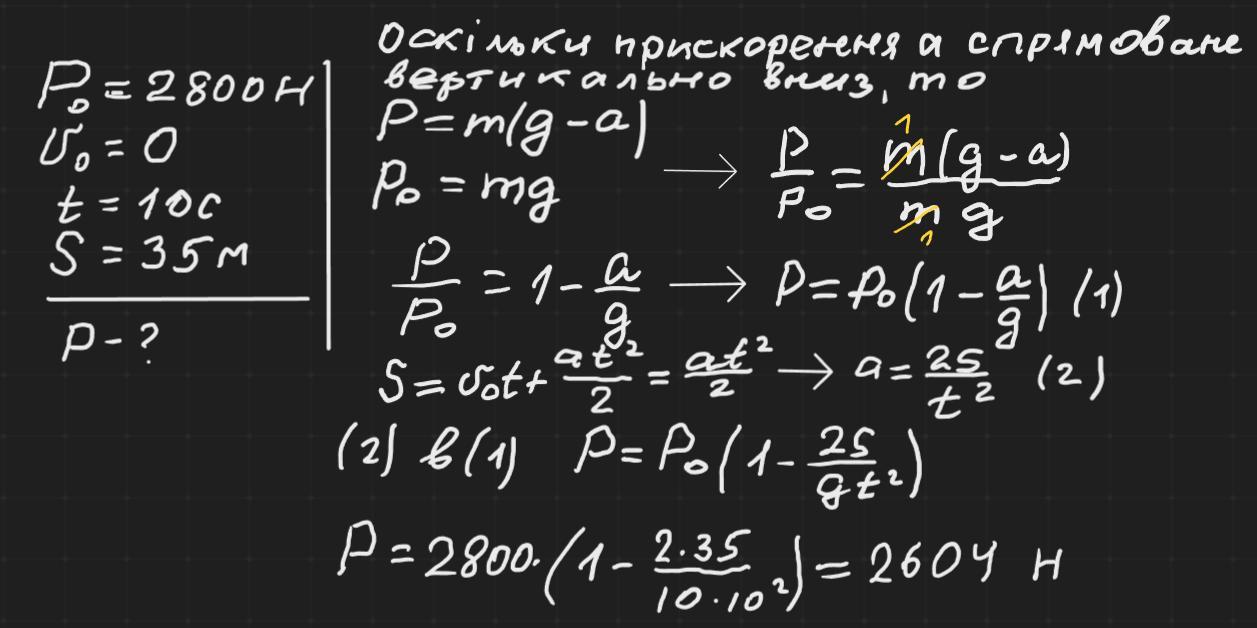 P₀ = 2800 Н
υ₀ = 0
t = 10 с
S = 35 м
P - ?
Оскільки прискорення a спрямоване
вертикально вниз, то
P = m(g - a)
P₀ = mg
→ P/P₀ = m(g - a)/mg
1
1
P/P₀ = 1 - a/g → P = P₀(1 - a/g) (1)
S = υ₀t + at²/2 = at²/2 → a = 2S/t² (2)
(2) в (1) P = P₀(1 - 2S/gt²)
P = 2800 · (1 - 2·35/10·10²) = 2604 Н